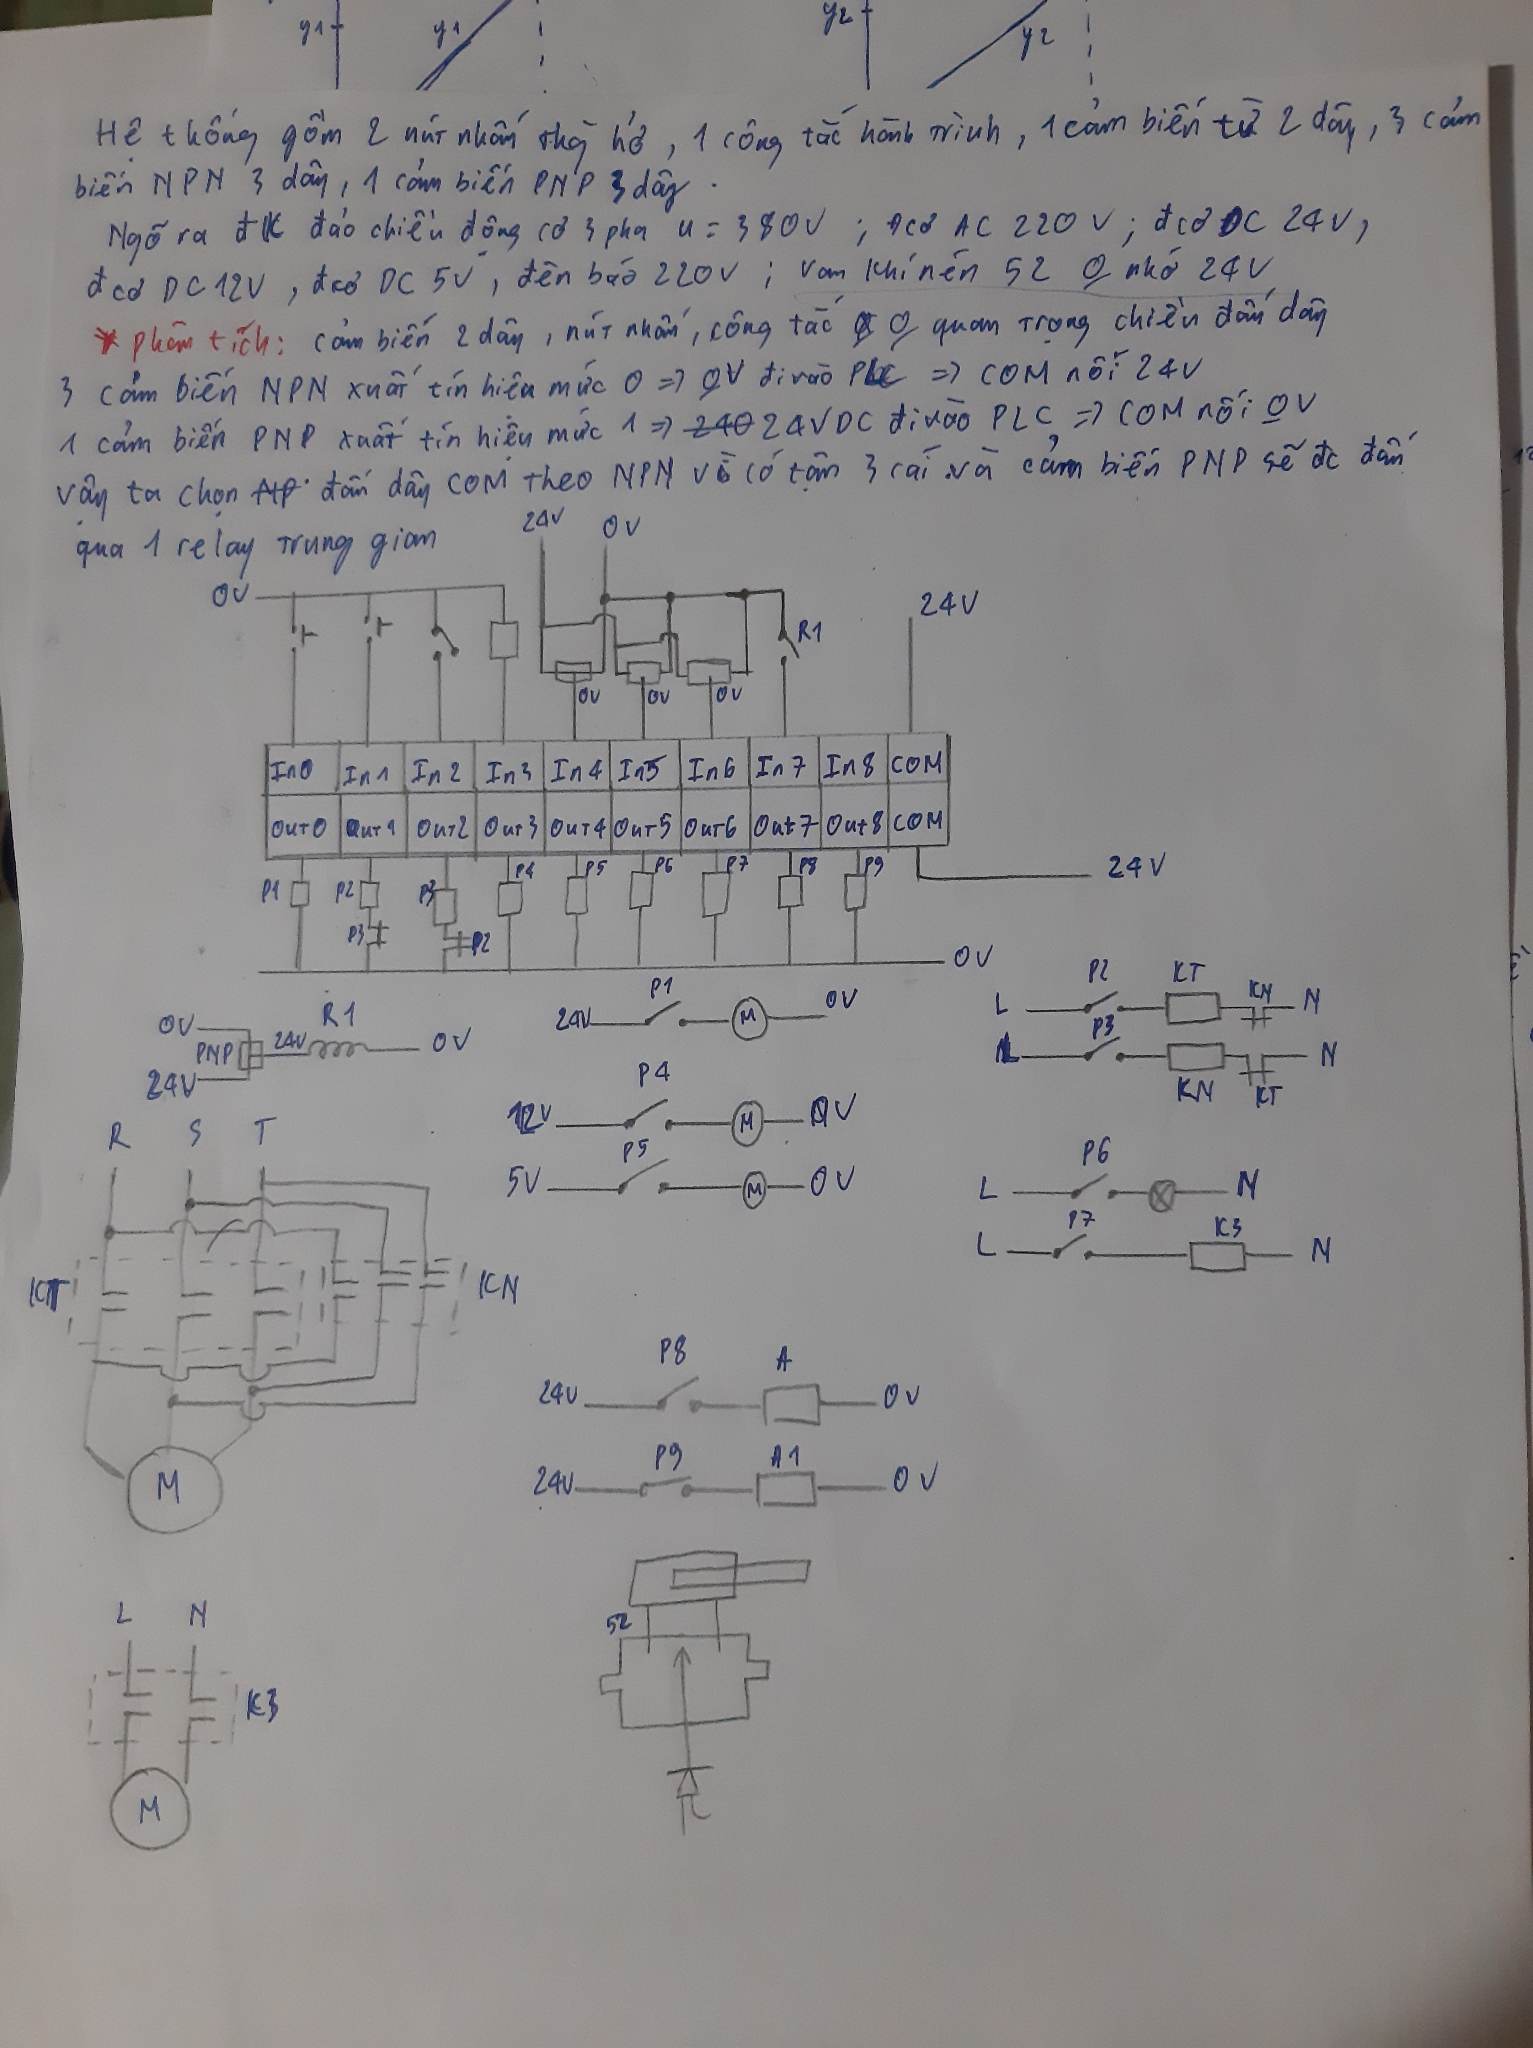 Hệ thống gồm 2 nút nhấn thg hở, 1 công tắc hành trình, 1 cảm biến từ 2 dây, 3 cảm
biến NPN 3 dây, 1 cảm biến PNP 3 dây.
Ngõ ra đk đảo chiều động cơ 3 pha u = 380V ; đcơ AC 220V ; đcơ DC 24V,
đcơ DC 12V, đcơ DC 5V, đèn báo 220V ; van khí nén 52 Q nhớ 24V
* phân tích: cảm biến 2 dây, nút nhấn, công tắc Q quan trọng chiều đấu dây
3 cảm biến NPN xuất tín hiệu mức 0 => 0V đi vào PLC => COM nối 24V
1 cảm biến PNP xuất tín hiệu mức 1 => 24VDC đi vào PLC => COM nối 0V
Vậy ta chọn đấu dây COM THEO NPN vì có tận 3 cái và cảm biến PNP sẽ đc đấu
qua 1 relay trung gian
24V 0V 24V
0V R1
0V 0V 0V
In0 In1 In2 In3 In4 In5 In6 In7 In8 COM
Out0 Out1 Out2 Out3 Out4 Out5 Out6 Out7 Out8 COM
P1 P2 P3 P4 P5 P6 P7 P8 P9 24V
P3 P2
0V
0V PNP 24V R1 0V
24V
24V P1 M 0V
12V P4 M 0V
5V P5 M 0V
L P2 KT KN N
P3 KN KT N
L P6 N
L P7 K3 N
R S T
KT KN
M
24V P8 A 0V
24V P9 A1 0V
52
L N
K3
M
y1 y1 y2 y2